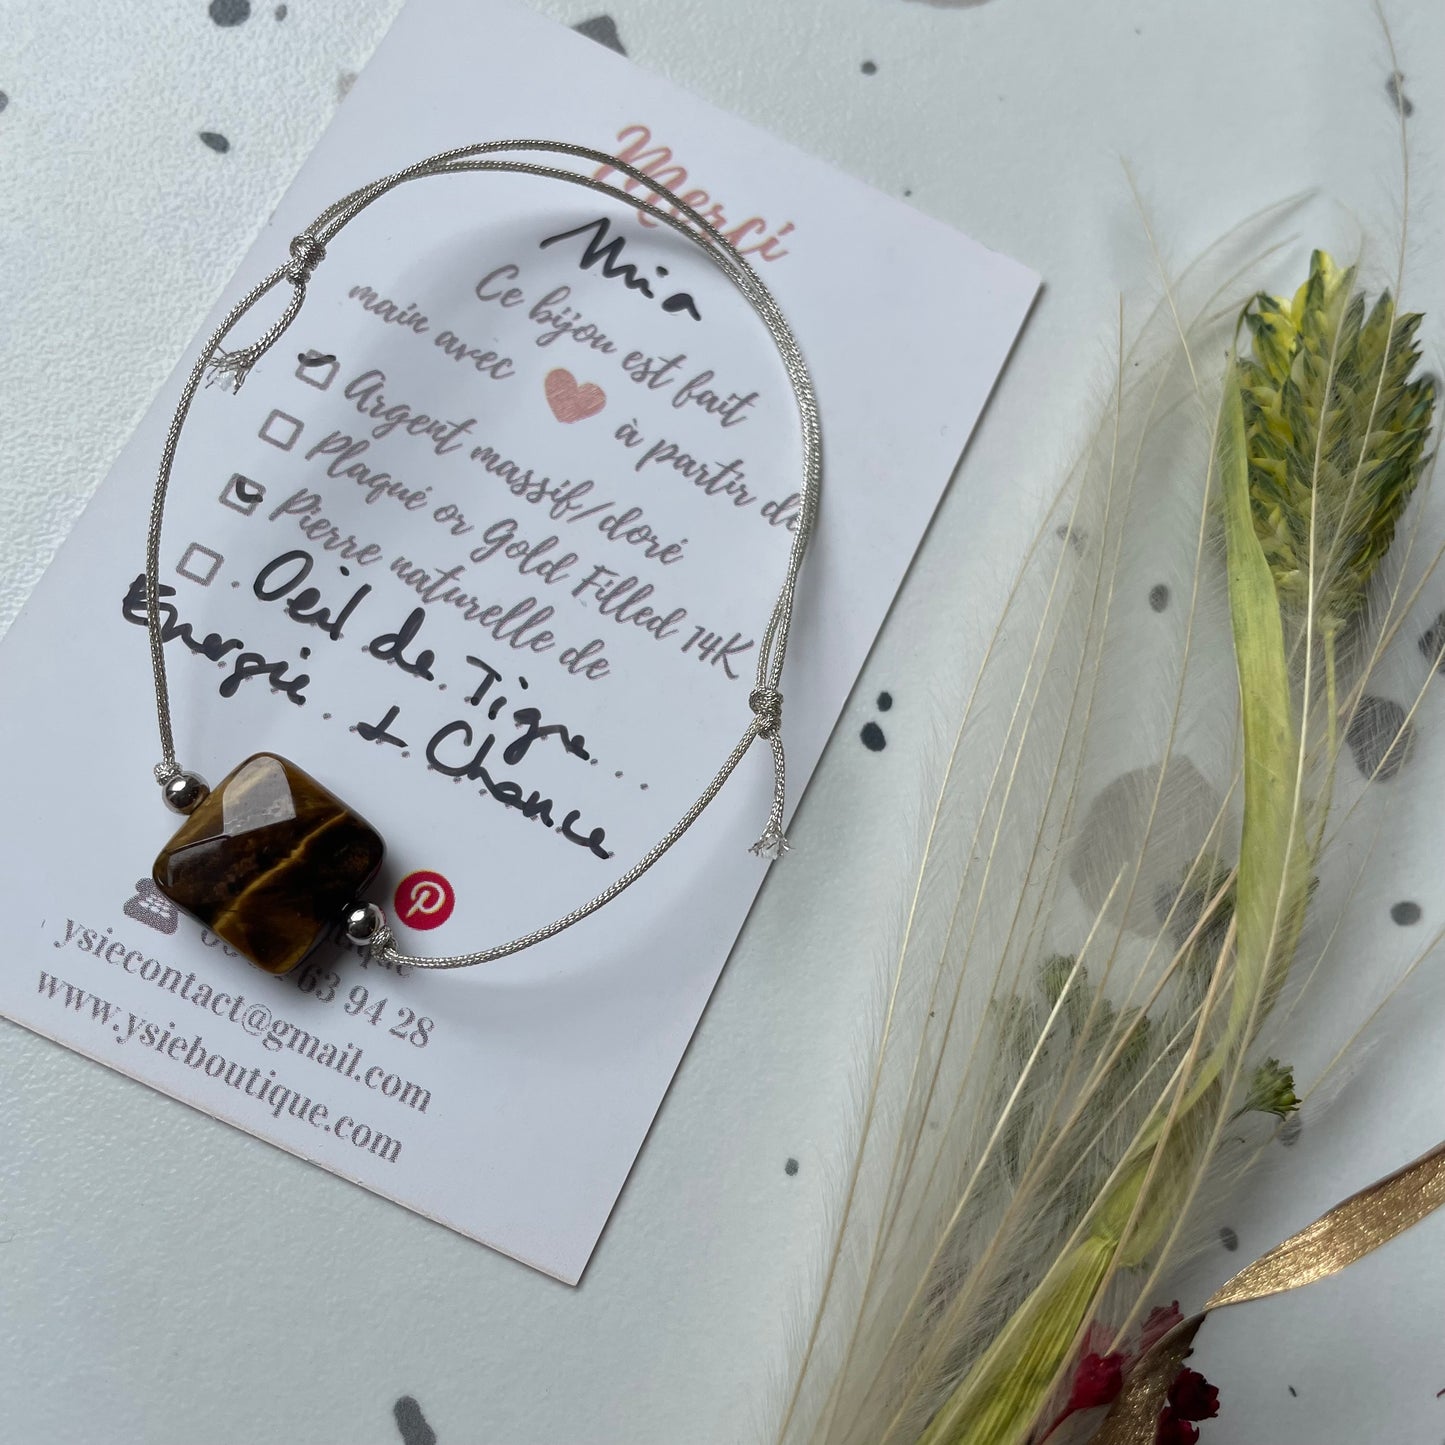 Merci
Mia
Ce bijou est fait
main avec à partir de
Argent massif/doré
Plaqué or Gold Filled 14K
Pierre naturelle de
Oeil de Tigre
Energie + Chance
63 94 28
ysiecontact@gmail.com
www.ysieboutique.com